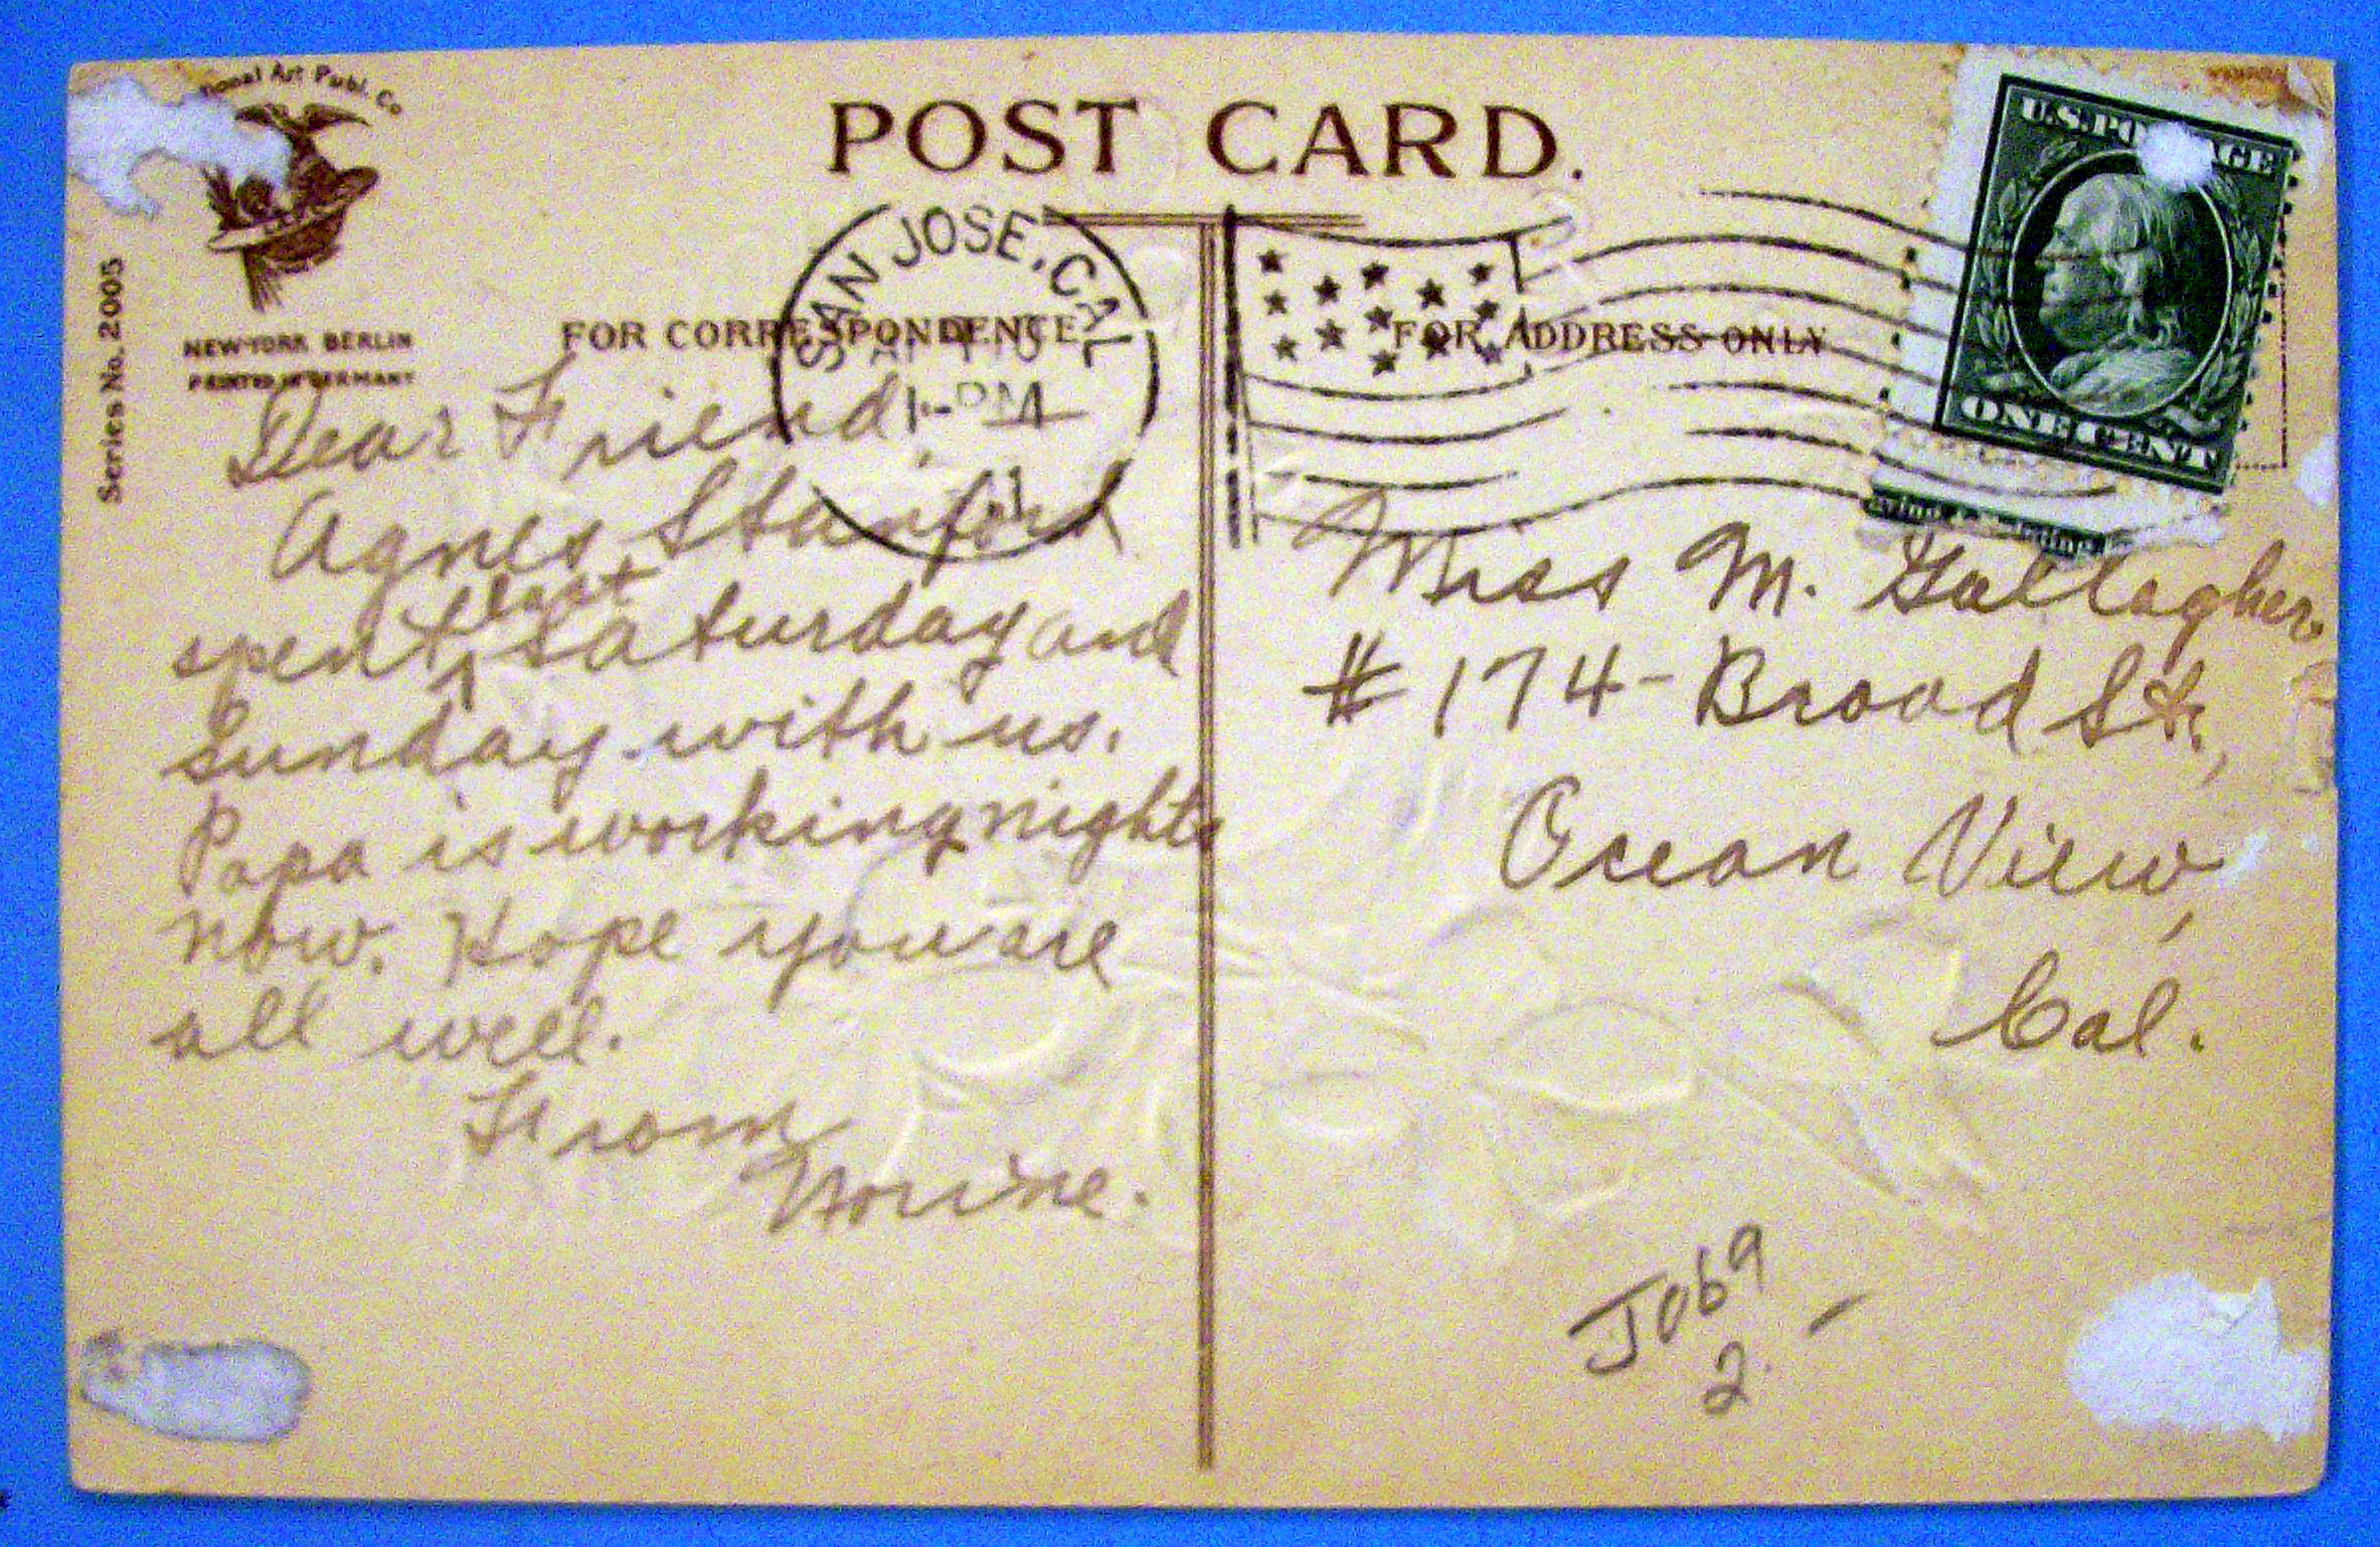 ional Art Publ. Co
POST CARD.
Series No. 2005
NEW-YORK BERLIN
PRINTED IN GERMANY
FOR CORRESPONDENCE
FOR ADDRESS ONLY
SAN JOSE, CAL
1-PM
11
U.S. POSTAGE
ONE CENT
Dear Friend,
Agnes Stanford
spent last Saturday and
Sunday with us.
Papa is working nights
now. Hope you are
all well.
From
Norine.
Miss M. Gallagher
# 174 - Broad St.,
Ocean View,
Cal.
Job 9
2. -